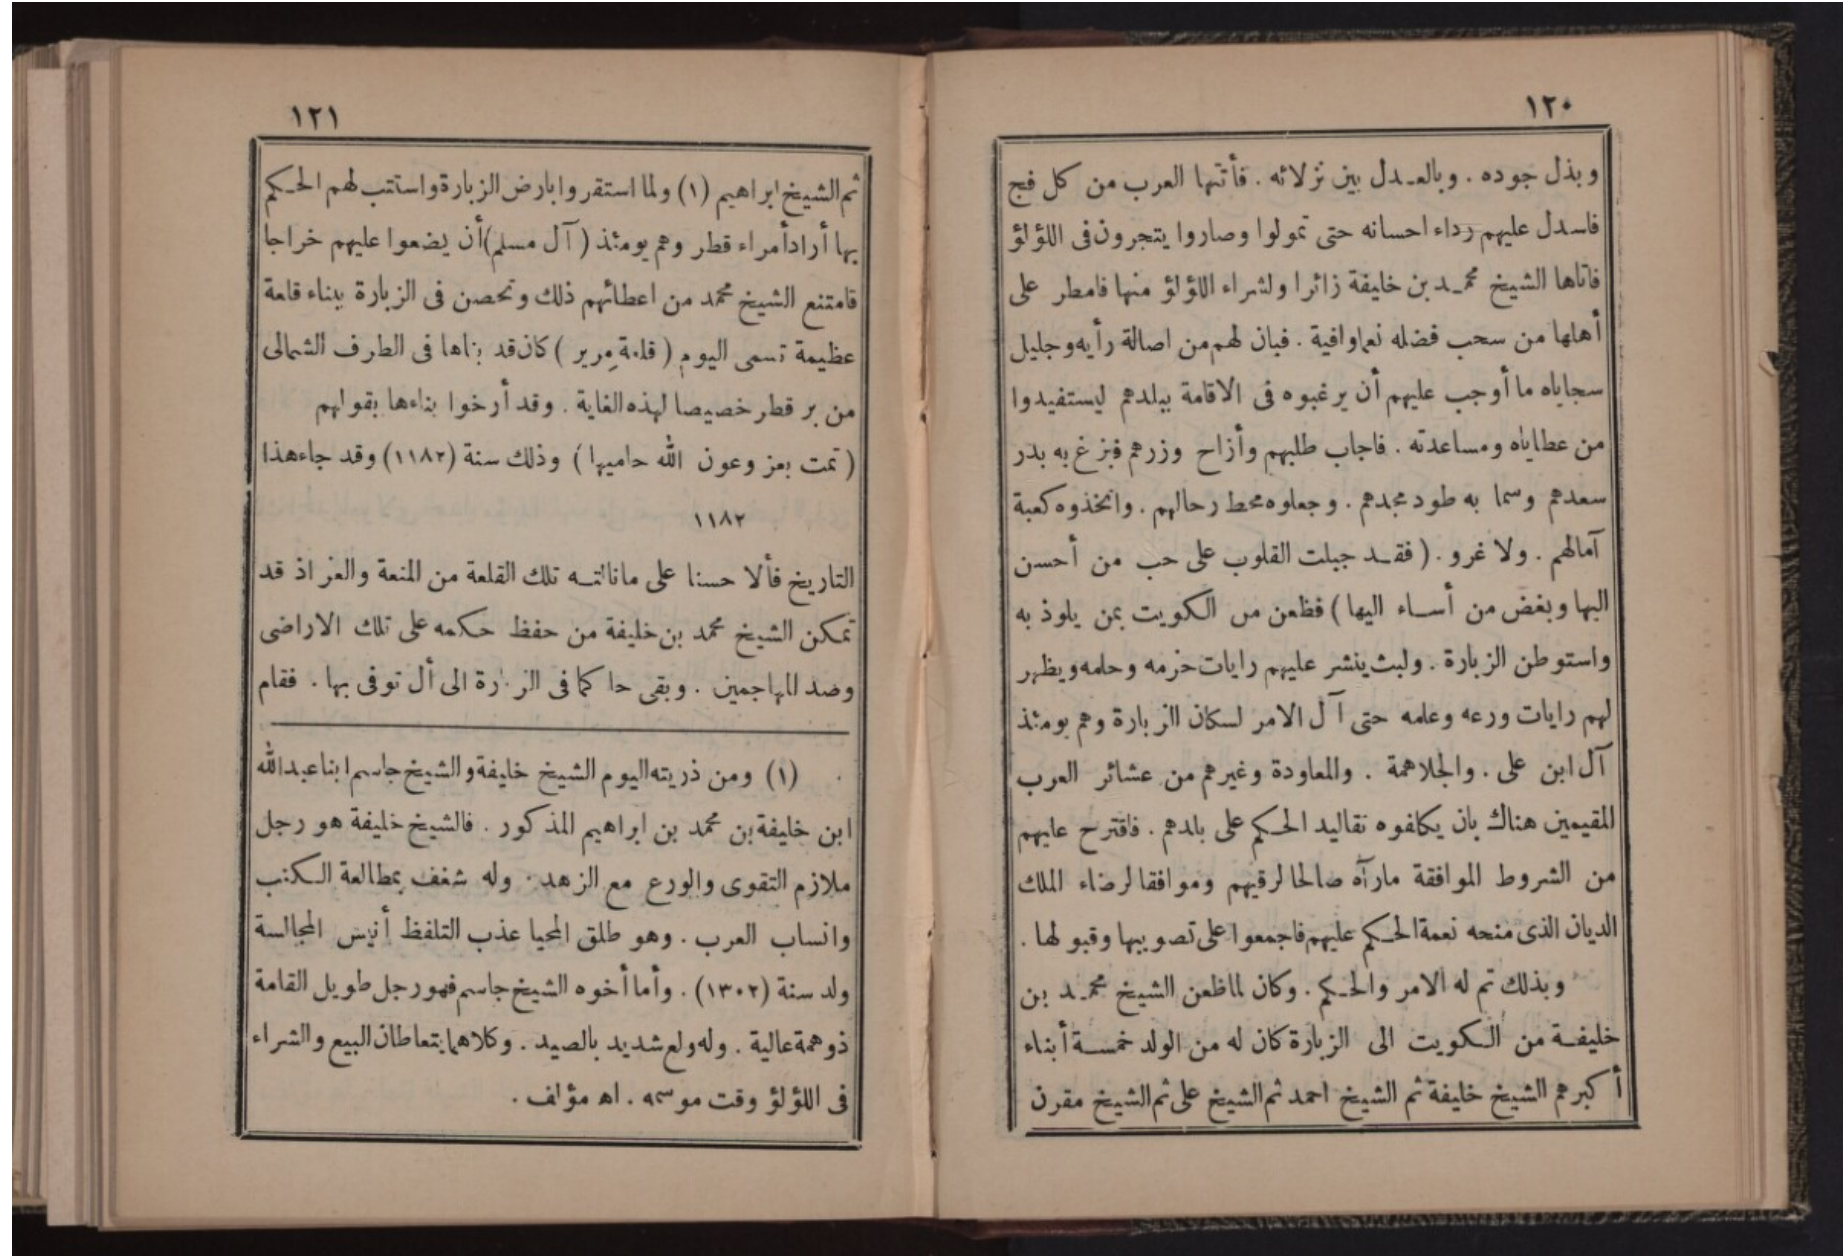 ١٢٠
وبذل جوده . وبالعدل بين نزلائه . فأتتها العرب من كل فج
فاسدل عليهم رداء احسانه حتى تمولوا وصاروا يتجرون فى اللؤلؤ
فاتاها الشيخ محمد بن خليفة زائرا ولشراء اللؤلؤ منها فامطر على
أهلها من سحب فضله نعما وافية . فبان لهم من اصالة رأيه وجليل
سجاياه ما أوجب عليهم أن يرغبوه فى الاقامة ببلدهم ليستفيدوا
من عطاياه ومساعدته . فاجاب طلبهم وأزاح وزرهم فبزغ به بدر
سعدهم وسما به طود مجدهم . وجعلوه محط رحالهم . واتخذوه كعبة
آمالهم . ولا غرو . ( فقد جبلت القلوب على حب من أحسن
اليها وبغض من أساء اليها ) فظعن من الكويت بمن يلوذ به
واستوطن الزبارة . ولبث ينشر عليهم رايات حزمه وحلمه ويظهر
لهم رايات ورعه وعلمه حتى آل الامر لسكان الزبارة وهم يومئذ
آل ابن على . والجلاهمة . والمعاودة وغيرهم من عشائر العرب
المقيمين هناك بان يكلفوه تقاليد الحكم على بلدهم . فاقترح عليهم
من الشروط الموافقة مارآه صالحا لرقيهم وموافقا لرضاء الملك
الديان الذى منحه نعمة الحكم عليهم فاجمعوا على تصويبها وقبولها .
وبذلك تم له الامر والحكم . وكان لما ظعن الشيخ محمد بن
خليفة من الكويت الى الزبارة كان له من الولد خمسة أبناء
أكبرهم الشيخ خليفة ثم الشيخ احمد ثم الشيخ على ثم الشيخ مقرن
١٢١
ثم الشيخ ابراهيم (١) ولما استقروا بارض الزبارة واستتب لهم الحكم
بها أراد أمراء قطر وهم يومئذ ( آل مسلم ) أن يضعوا عليهم خراجا
فامتنع الشيخ محمد من اعطائهم ذلك وتحصن فى الزبارة ببناء قلعة
عظيمة تسمى اليوم ( قلعة مرير ) كان قد بناها فى الطرف الشمالى
من بر قطر خصيصا لهذه الغاية . وقد أرخوا بناءها بقولهم
( تمت بعز وعون الله حاميها ) وذلك سنة (١١٨٢) وقد جاء هذا
١١٨٢
التاريخ فألا حسنا على مانالته تلك القلعة من المنعة والعز اذ قد
تمكن الشيخ محمد بن خليفة من حفظ حكمه على تلك الاراضى
وصد المهاجمين . وبقى حاكما فى الزبارة الى أن توفى بها . فقام
(١) ومن ذريته اليوم الشيخ خليفة والشيخ جاسم ابنا عبدالله
ابن خليفة بن محمد بن ابراهيم المذكور . فالشيخ خليفة هو رجل
ملازم التقوى والورع مع الزهد . وله شغف بمطالعة الكتب
وانساب العرب . وهو طلق المحيا عذب التلفظ أنيس المجالسة
ولد سنة (١٣٠٢) . وأما أخوه الشيخ جاسم فهو رجل طويل القامة
ذو همة عالية . وله ولع شديد بالصيد . وكلاهما يتعاطان البيع والشراء
فى اللؤلؤ وقت موسمه . اه مؤلف .